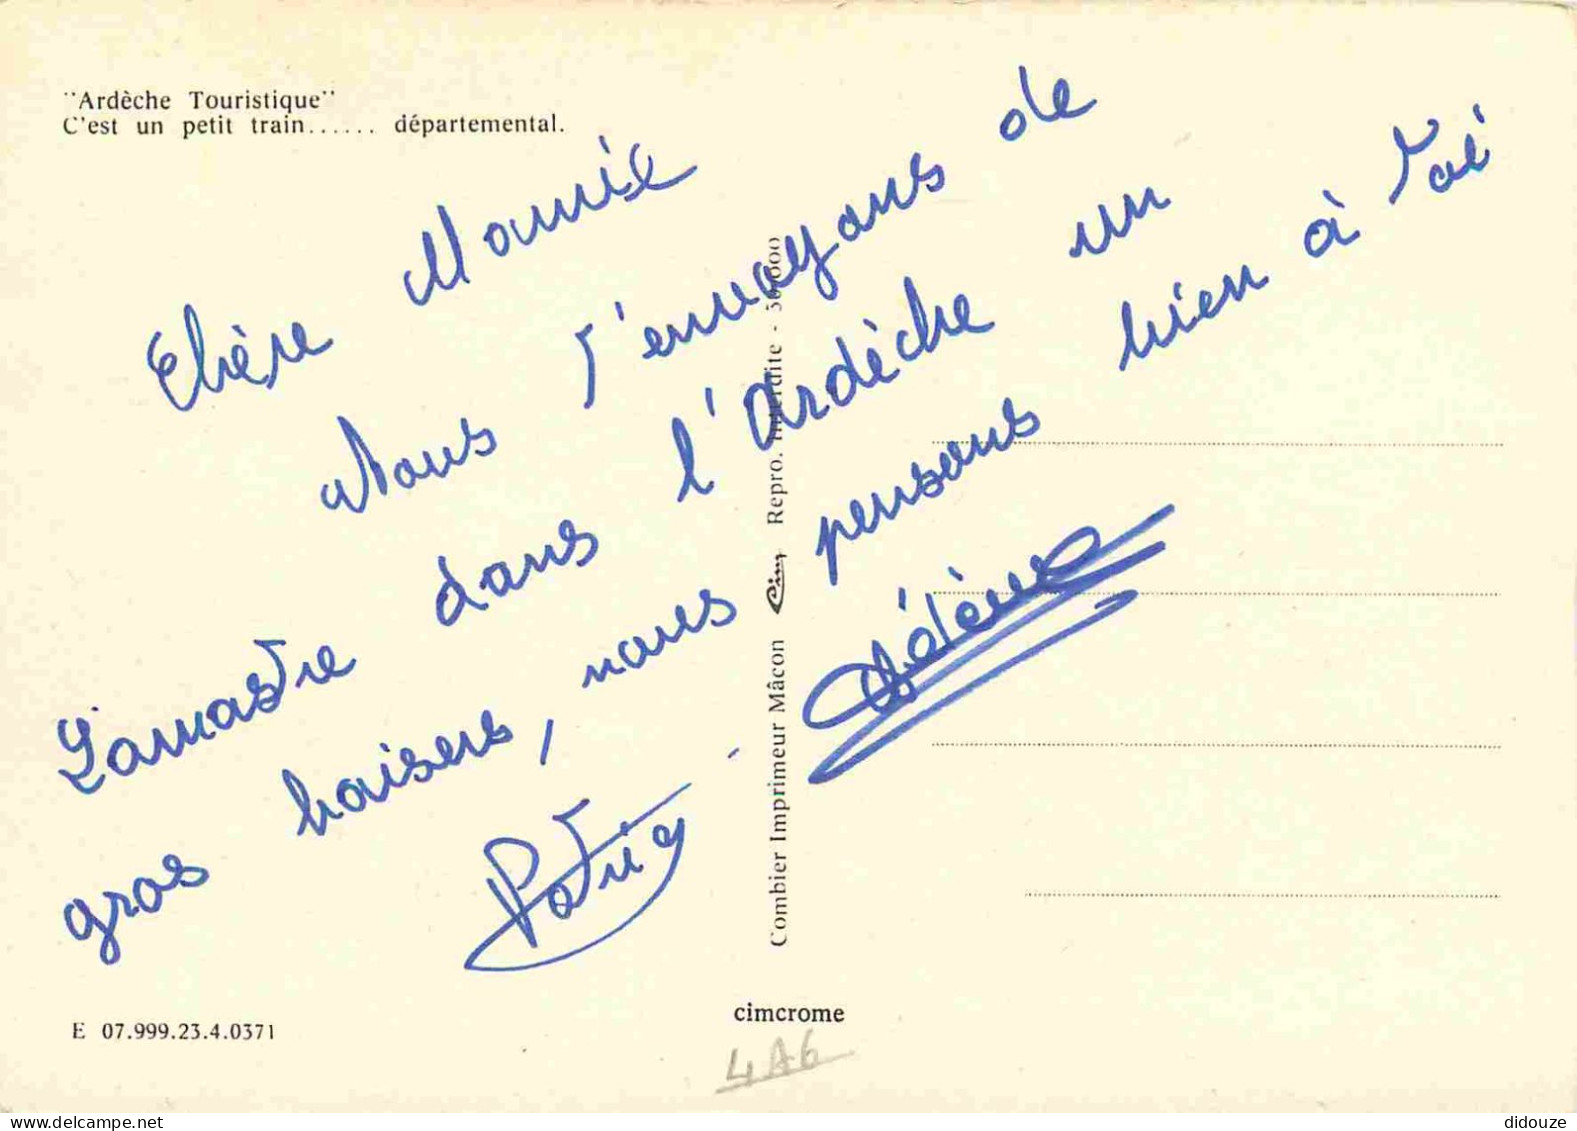 "Ardèche Touristique"
C'est un petit train...... départemental.
Chère Mamie
Nous t'envoyons de
Lamastre dans l'Ardèche un
gros baisers, nous pensons bien à toi
Patric - Hélène
Combier Imprimeur Mâcon Cim Repro. Interdite - 30.000
E 07.999.23.4.0371
cimcrome
4A6
didouze